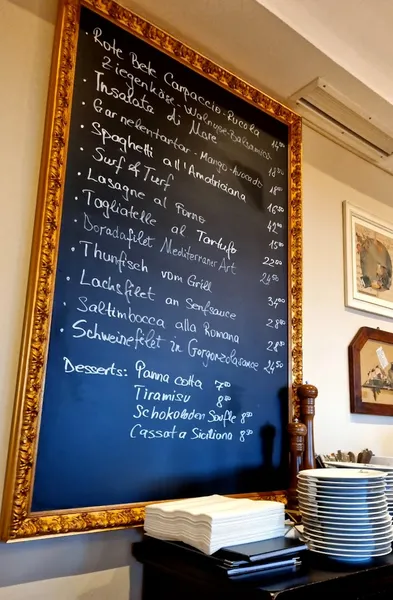 · Rote Bete Carpaccio-Rucola
Ziegenkäse-Walnüsse-Balsamico 14⁰⁰
· Insalata di Mare 18⁵⁰
· Garnelentartar-Mango-Avocado 18⁰⁰
· Spaghetti all'Amatriciana 16⁵⁰
· Surf & Turf 42⁰⁰
· Lasagne al Forno 15⁰⁰
· Tagliatelle al Tartufo 22⁰⁰
· Doradafilet Mediterraner Art 24⁵⁰
· Thunfisch vom Grill 34⁰⁰
· Lachsfilet an Senfsauce 28⁰⁰
· Saltimbocca alla Romana 28⁰⁰
· Schweinefilet in Gorgonzolasauce 24⁵⁰
Desserts: Panna cotta 7⁰⁰
Tiramisu 8⁰⁰
Schokoladen Soufle 8⁵⁰
Cassata Siciliana 8⁵⁰